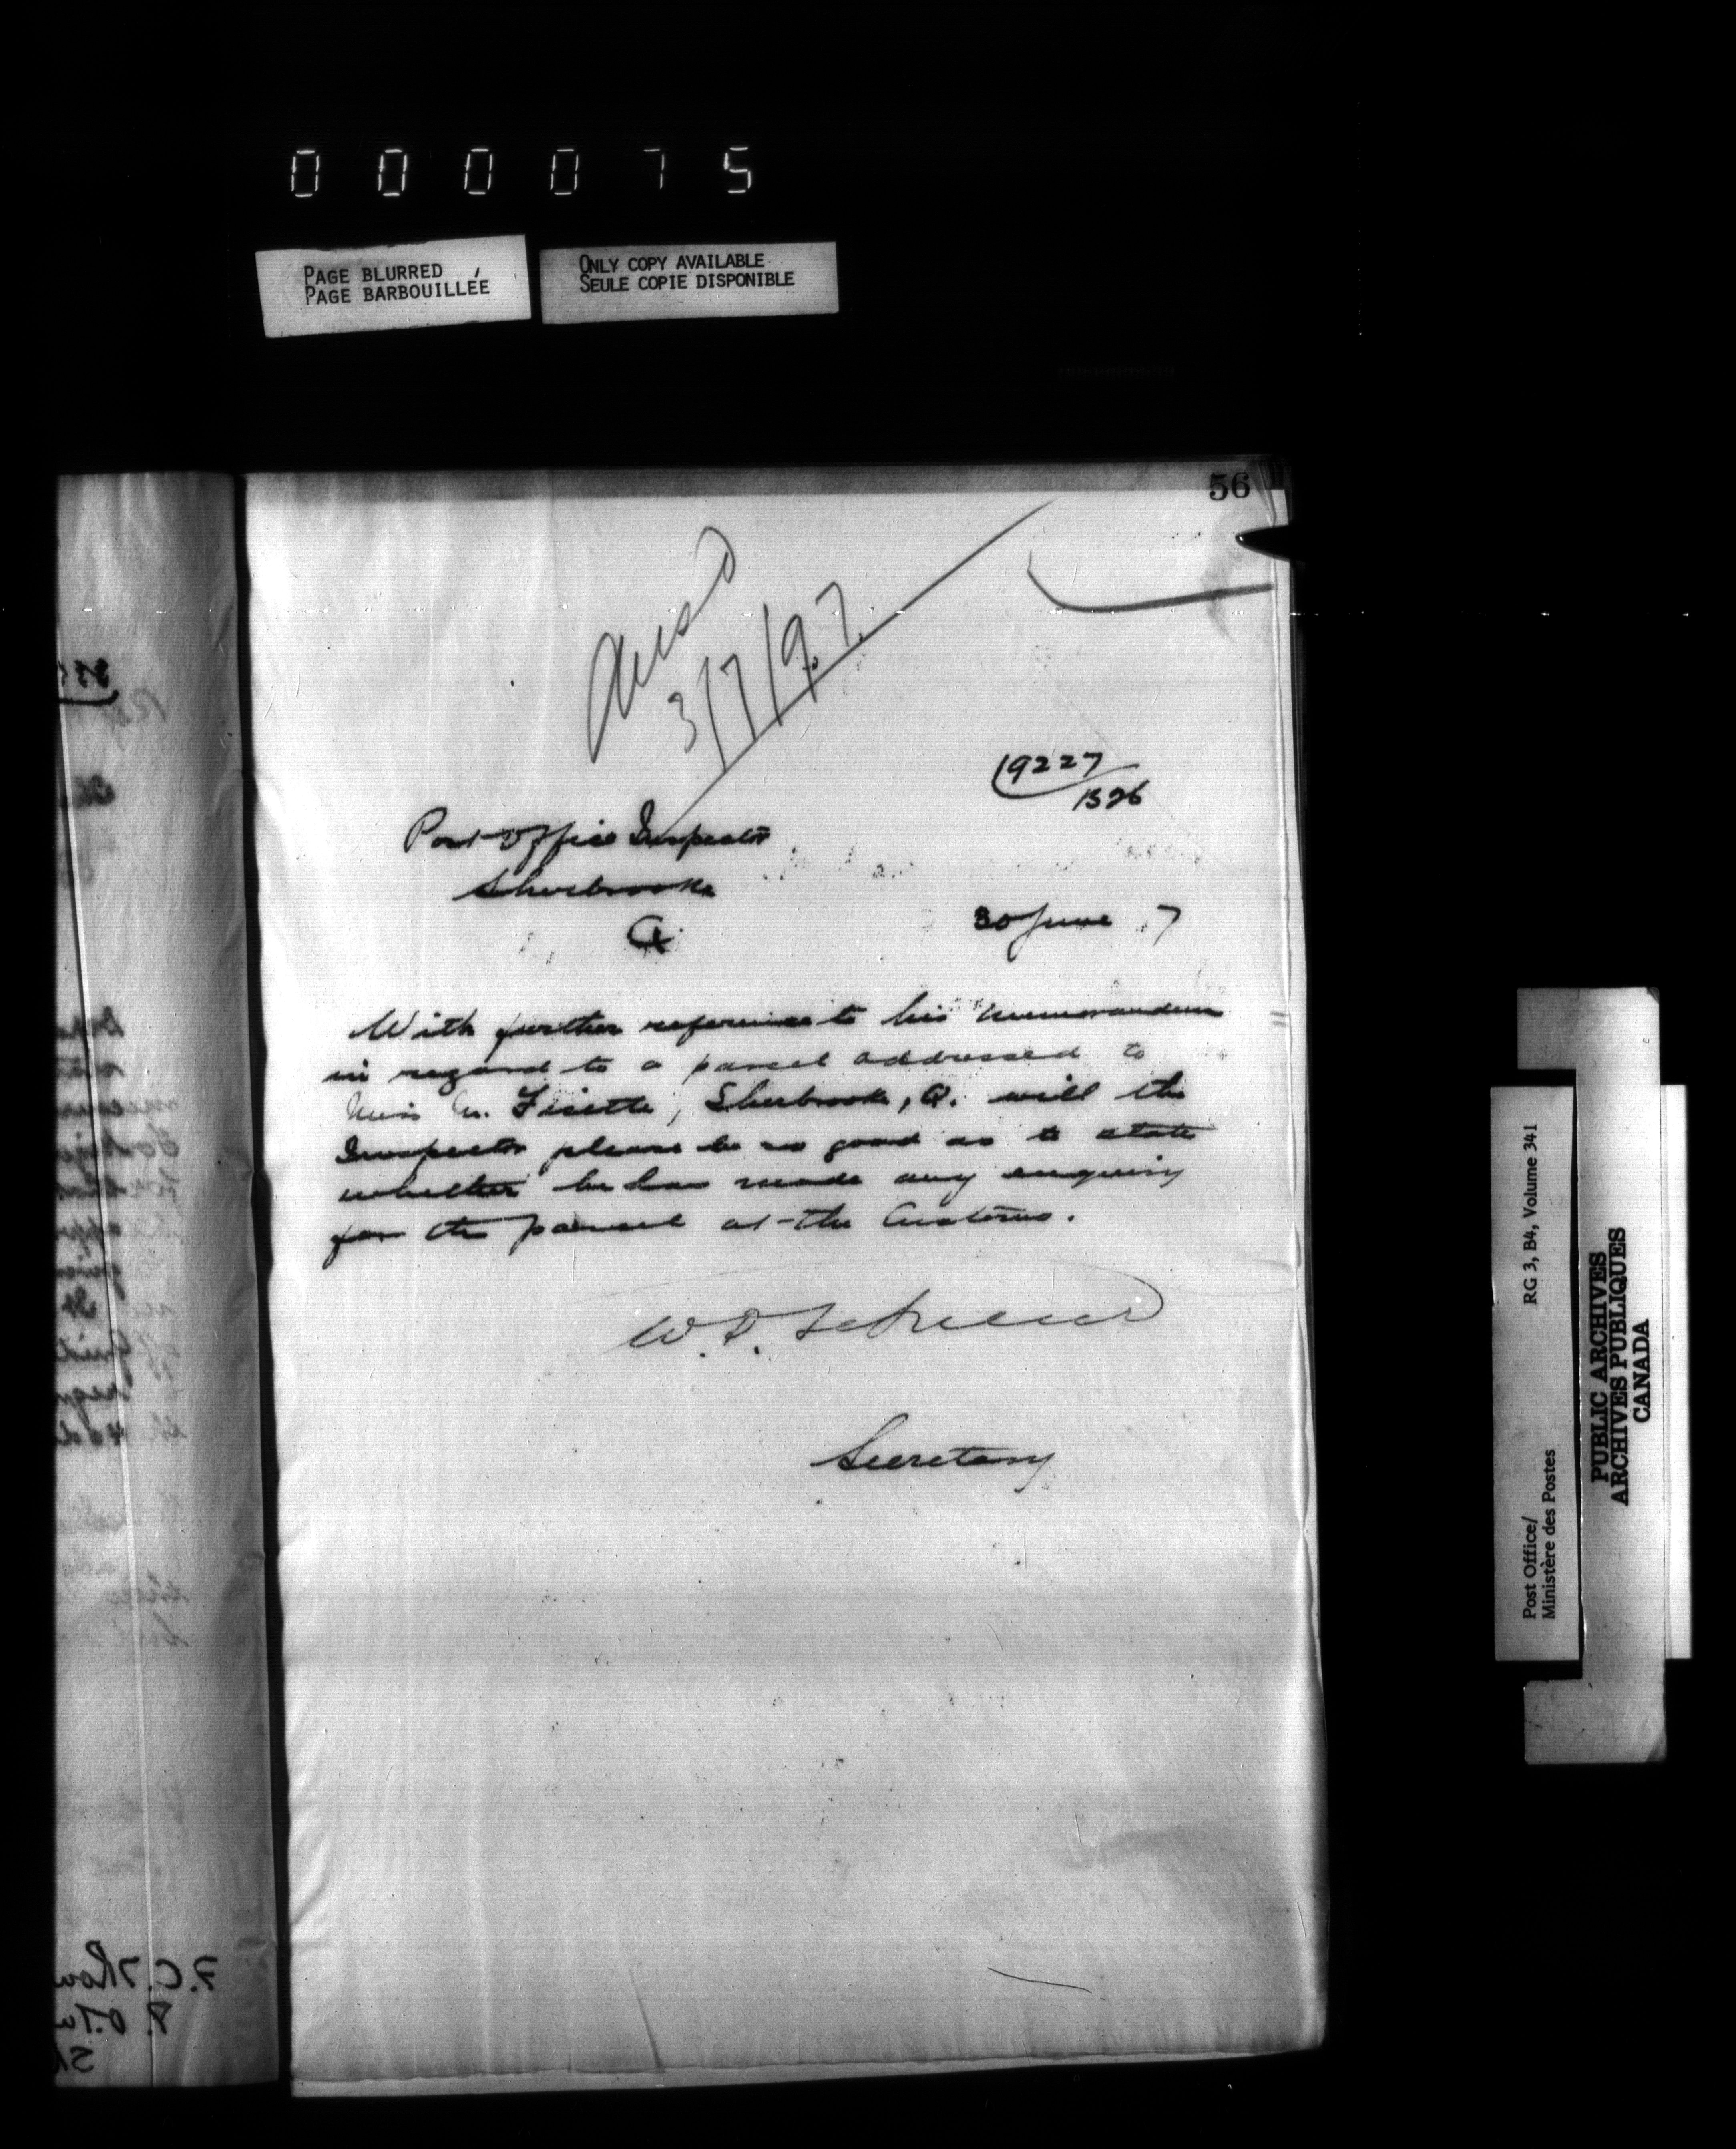 0 0 0 0 7 5
PAGE BLURRED
PAGE BARBOUILLÉE
ONLY COPY AVAILABLE
SEULE COPIE DISPONIBLE
56
3/7/97
19227
1396
Post Office Inspector
Sherbrooke
Q
30 June 7
With further reference to his memorandum
in regard to a parcel addressed to
Miss M. Fisette, Sherbrooke, Q. will the
Inspector please be so good as to state
whether he has made any enquiry
for the parcel at the Customs.
W. D.
Secretary
F. C.
P. O.
RG 3, B4, Volume 341
Post Office/
Ministère des Postes
PUBLIC ARCHIVES
ARCHIVES PUBLIQUES
CANADA